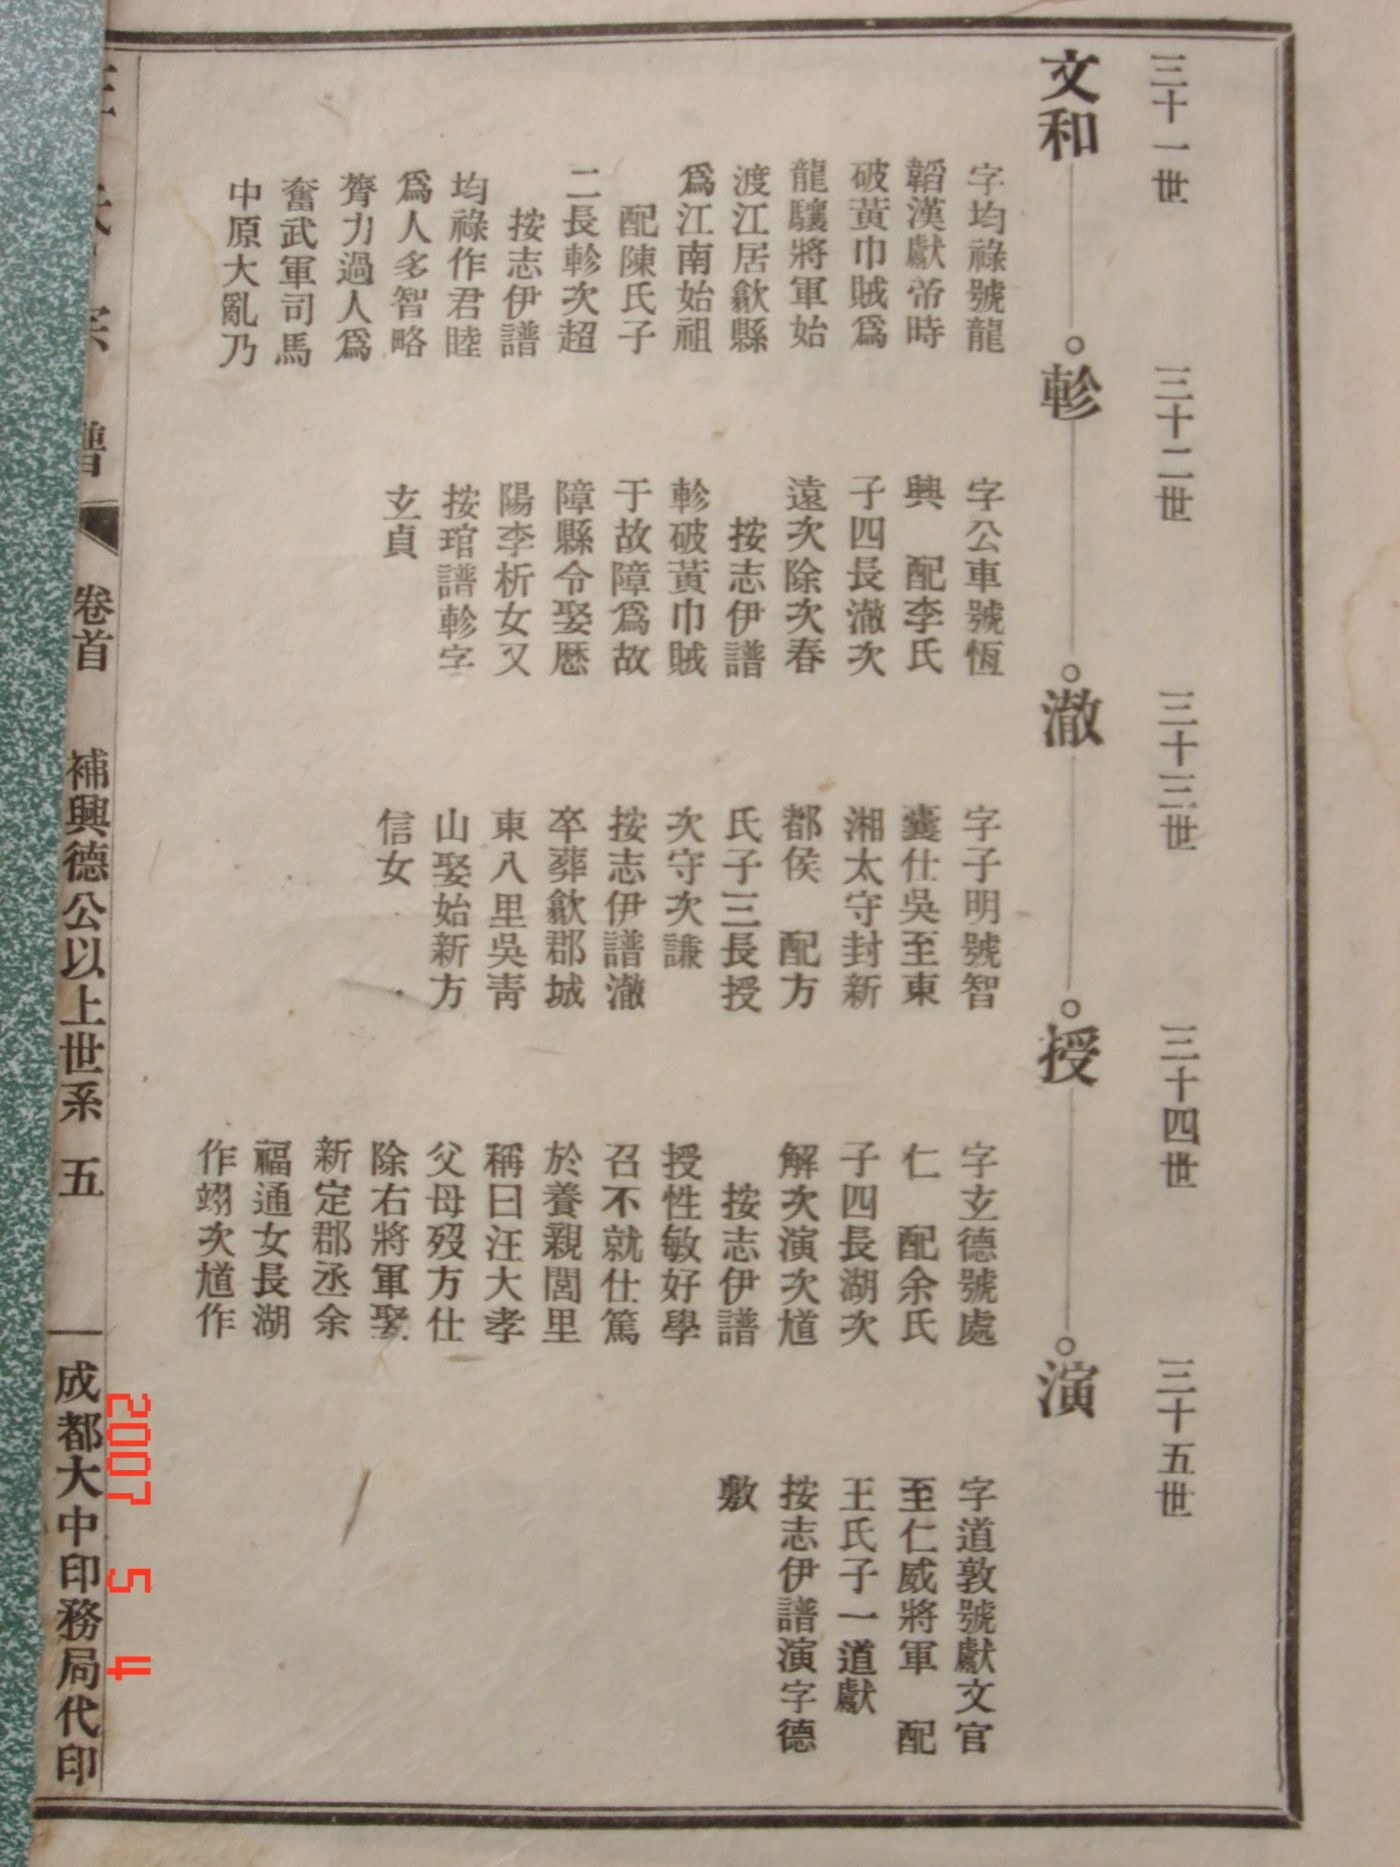 三十一世
三十二世
三十三世
三十四世
三十五世
文和
軫
澈
授
演
字均祿號龍
韜漢獻帝時
破黃巾賊爲
龍驤將軍始
渡江居歙縣
爲江南始祖
配陳氏子
二長軫次超
按志伊譜
均祿作君睦
爲人多智略
膂力過人爲
奮武軍司馬
中原大亂乃
字公車號恆
興　配李氏
子四長澈次
遠次除次春
按志伊譜
軫破黃巾賊
于故障爲故
障縣令娶厯
陽李析女又
按琯譜軫字
玄貞
字子明號智
囊仕吳至東
湘太守封新
都侯　配方
氏子三長授
次守次謙
按志伊譜澈
卒葬歙郡城
東八里吳靑
山娶始新方
信女
字玄德號處
仁　配余氏
子四長湖次
解次演次馗
按志伊譜
授性敏好學
召不就仕篤
於養親閭里
稱曰汪大孝
父母歿方仕
除右將軍娶
新定郡丞余
福通女長湖
作翊次馗作
字道敦號獻文官
至仁威將軍　配
王氏子一道獻
按志伊譜演字德
敷
宗譜　卷首　補興德公以上世系　五　成都大中印務局代印
2007 5 4